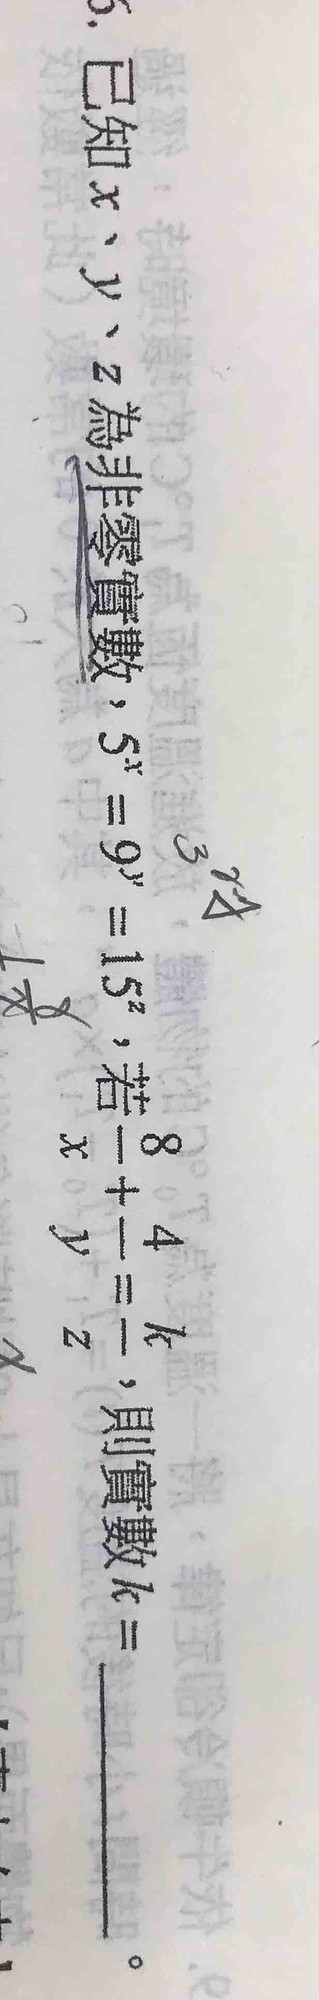 6. 已知 x、y、z 為非零實數，5^x = 9^y = 15^z，若 8/x + 4/y = k/z，則實數 k = ________。